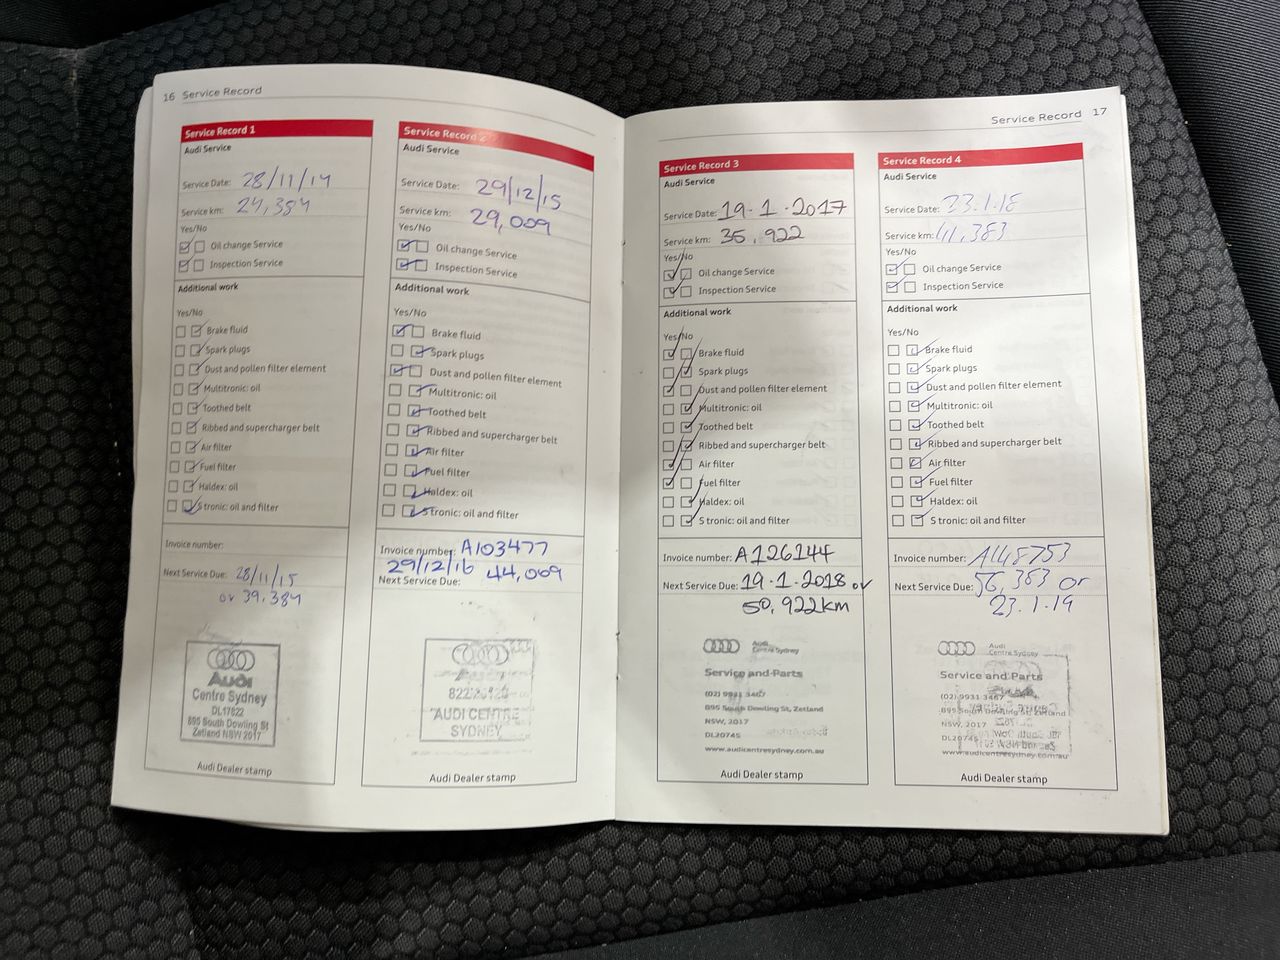 16 Service Record
Service Record 1
Audi Service
Service Date: 28/11/14
Service km: 24,384
Yes/No
Oil change Service
Inspection Service
Additional work
Yes/No
Brake fluid
Spark plugs
Dust and pollen filter element
Multitronic: oil
Toothed belt
Ribbed and supercharger belt
Air filter
Fuel filter
Haldex: oil
S tronic: oil and filter
Invoice number:
Next Service Due: 28/11/15
or 39,384
Audi
Centre Sydney
DL17822
895 South Dowling St
Zetland NSW 2017
Audi Dealer stamp
Service Record 2
Audi Service
Service Date: 29/12/15
Service km: 29,009
Yes/No
Oil change Service
Inspection Service
Additional work
Yes/No
Brake fluid
Spark plugs
Dust and pollen filter element
Multitronic: oil
Toothed belt
Ribbed and supercharger belt
Air filter
Fuel filter
Haldex: oil
S tronic: oil and filter
Invoice number: A103477
29/12/16 44,009
Next Service Due:
AUDI CENTRE
SYDNEY
Audi Dealer stamp
Service Record 17
Service Record 3
Audi Service
Service Date: 19·1·2017
Service km: 35,922
Yes/No
Oil change Service
Inspection Service
Additional work
Yes/No
Brake fluid
Spark plugs
Dust and pollen filter element
Multitronic: oil
Toothed belt
Ribbed and supercharger belt
Air filter
Fuel filter
Haldex: oil
S tronic: oil and filter
Invoice number: A126144
Next Service Due: 19·1·2018 or
50,922km
Audi
Centre Sydney
Service and Parts
(02) 9931 3467
895 South Dowling St, Zetland
NSW, 2017
DL20745
www.audicentresydney.com.au
Audi Dealer stamp
Service Record 4
Audi Service
Service Date: 23.1.18
Service km: 41,383
Yes/No
Oil change Service
Inspection Service
Additional work
Yes/No
Brake fluid
Spark plugs
Dust and pollen filter element
Multitronic: oil
Toothed belt
Ribbed and supercharger belt
Air filter
Fuel filter
Haldex: oil
S tronic: oil and filter
Invoice number: A148753
Next Service Due: 56,383 or
23.1.19
Audi
Centre Sydney
Service and Parts
(02) 9931 3467
895 South Dowling St, Zetland
NSW, 2017
DL20745
www.audicentresydney.com.au
Audi Dealer stamp